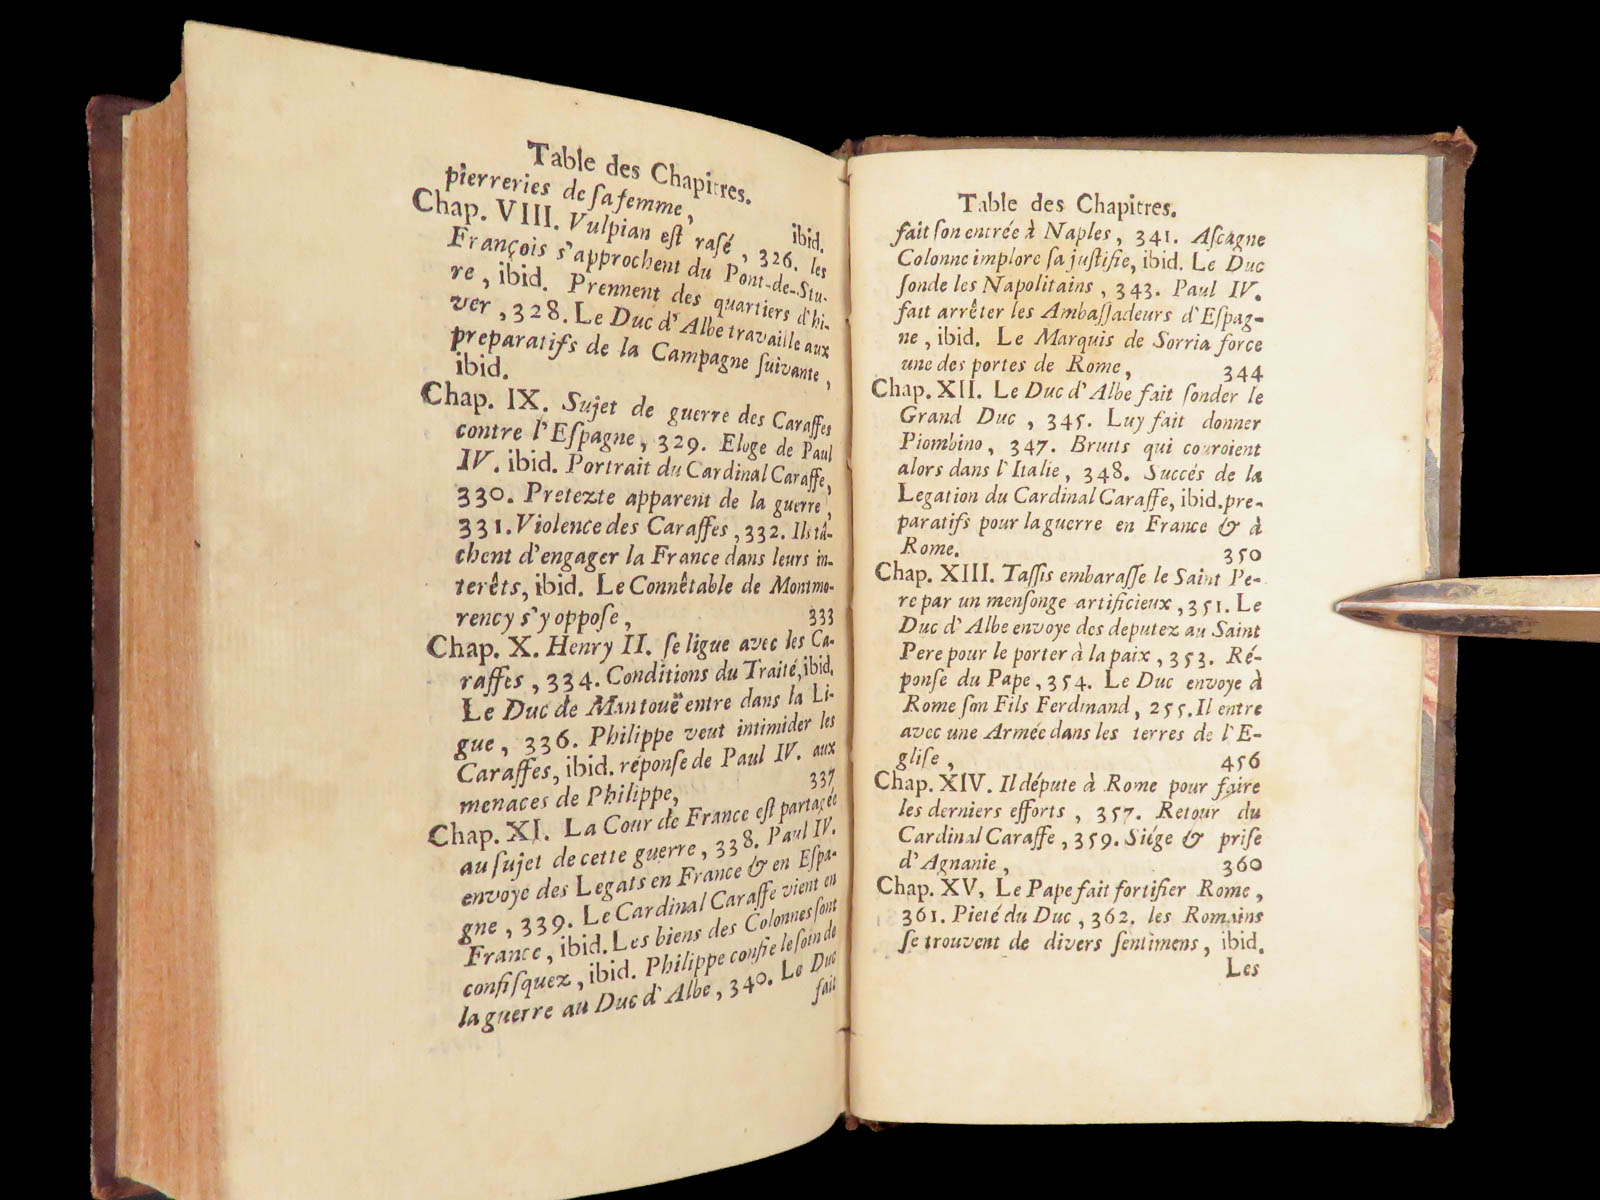 Table des Chapitres.
pierreries de ſa femme, ibid.
Chap. VIII. Vulpian eſt raſé, 326. les
François s'approchent du Pont-de-Stu-
re, ibid. Prennent des quartiers d'hi-
ver, 328. Le Duc d'Albe travaille aux
preparatifs de la Campagne ſuivante,
ibid.
Chap. IX. Sujet de guerre des Caraffes
contre l'Eſpagne, 329. Eloge de Paul
IV. ibid. Portrait du Cardinal Caraffe,
330. Pretezte apparent de la guerre,
331. Violence des Caraffes, 332. Ils tâ-
chent d'engager la France dans leurs in-
terêts, ibid. Le Connêtable de Montmo-
rency s'y oppoſe, 333
Chap. X. Henry II. ſe ligue avec les Ca-
raffes, 334. Conditions du Traité, ibid.
Le Duc de Mantouë entre dans la Li-
gue, 336. Philippe veut intimider les
Caraffes, ibid. réponſe de Paul IV. aux
menaces de Philippe, 337
Chap. XI. La Cour de France eſt partagée
au ſujet de cette guerre, 338. Paul IV.
envoye des Legats en France & en Eſpa-
gne, 339. Le Cardinal Caraffe vient en
France, ibid. Les biens des Colonnes ſont
confiſquez, ibid. Philippe confie le ſoin de
la guerre au Duc d'Albe, 340. Le Duc
fait
Table des Chapitres.
fait ſon entrée à Naples, 341. Aſcagne
Colonne implore ſa juſtifie, ibid. Le Duc
ſonde les Napolitains, 343. Paul IV.
fait arrêter les Ambaſſadeurs d'Eſpag-
ne, ibid. Le Marquis de Sorria force
une des portes de Rome, 344
Chap. XII. Le Duc d'Albe fait ſonder le
Grand Duc, 345. Luy fait donner
Piombino, 347. Bruits qui couroient
alors dans l'Italie, 348. Succés de la
Legation du Cardinal Caraffe, ibid. pre-
paratifs pour la guerre en France & à
Rome. 350
Chap. XIII. Taſſis embaraſſe le Saint Pe-
re par un menſonge artificieux, 351. Le
Duc d'Albe envoye des deputez au Saint
Pere pour le porter à la paix, 353. Ré-
ponſe du Pape, 354. Le Duc envoye à
Rome ſon Fils Ferdinand, 255. Il entre
avec une Armée dans les terres de l'E-
gliſe, 456
Chap. XIV. Il députe à Rome pour faire
les derniers efforts, 357. Retour du
Cardinal Caraffe, 359. Siége & priſe
d'Agnanie, 360
Chap. XV, Le Pape fait fortifier Rome,
361. Pieté du Duc, 362. les Romains
ſe trouvent de divers ſentimens, ibid.
Les